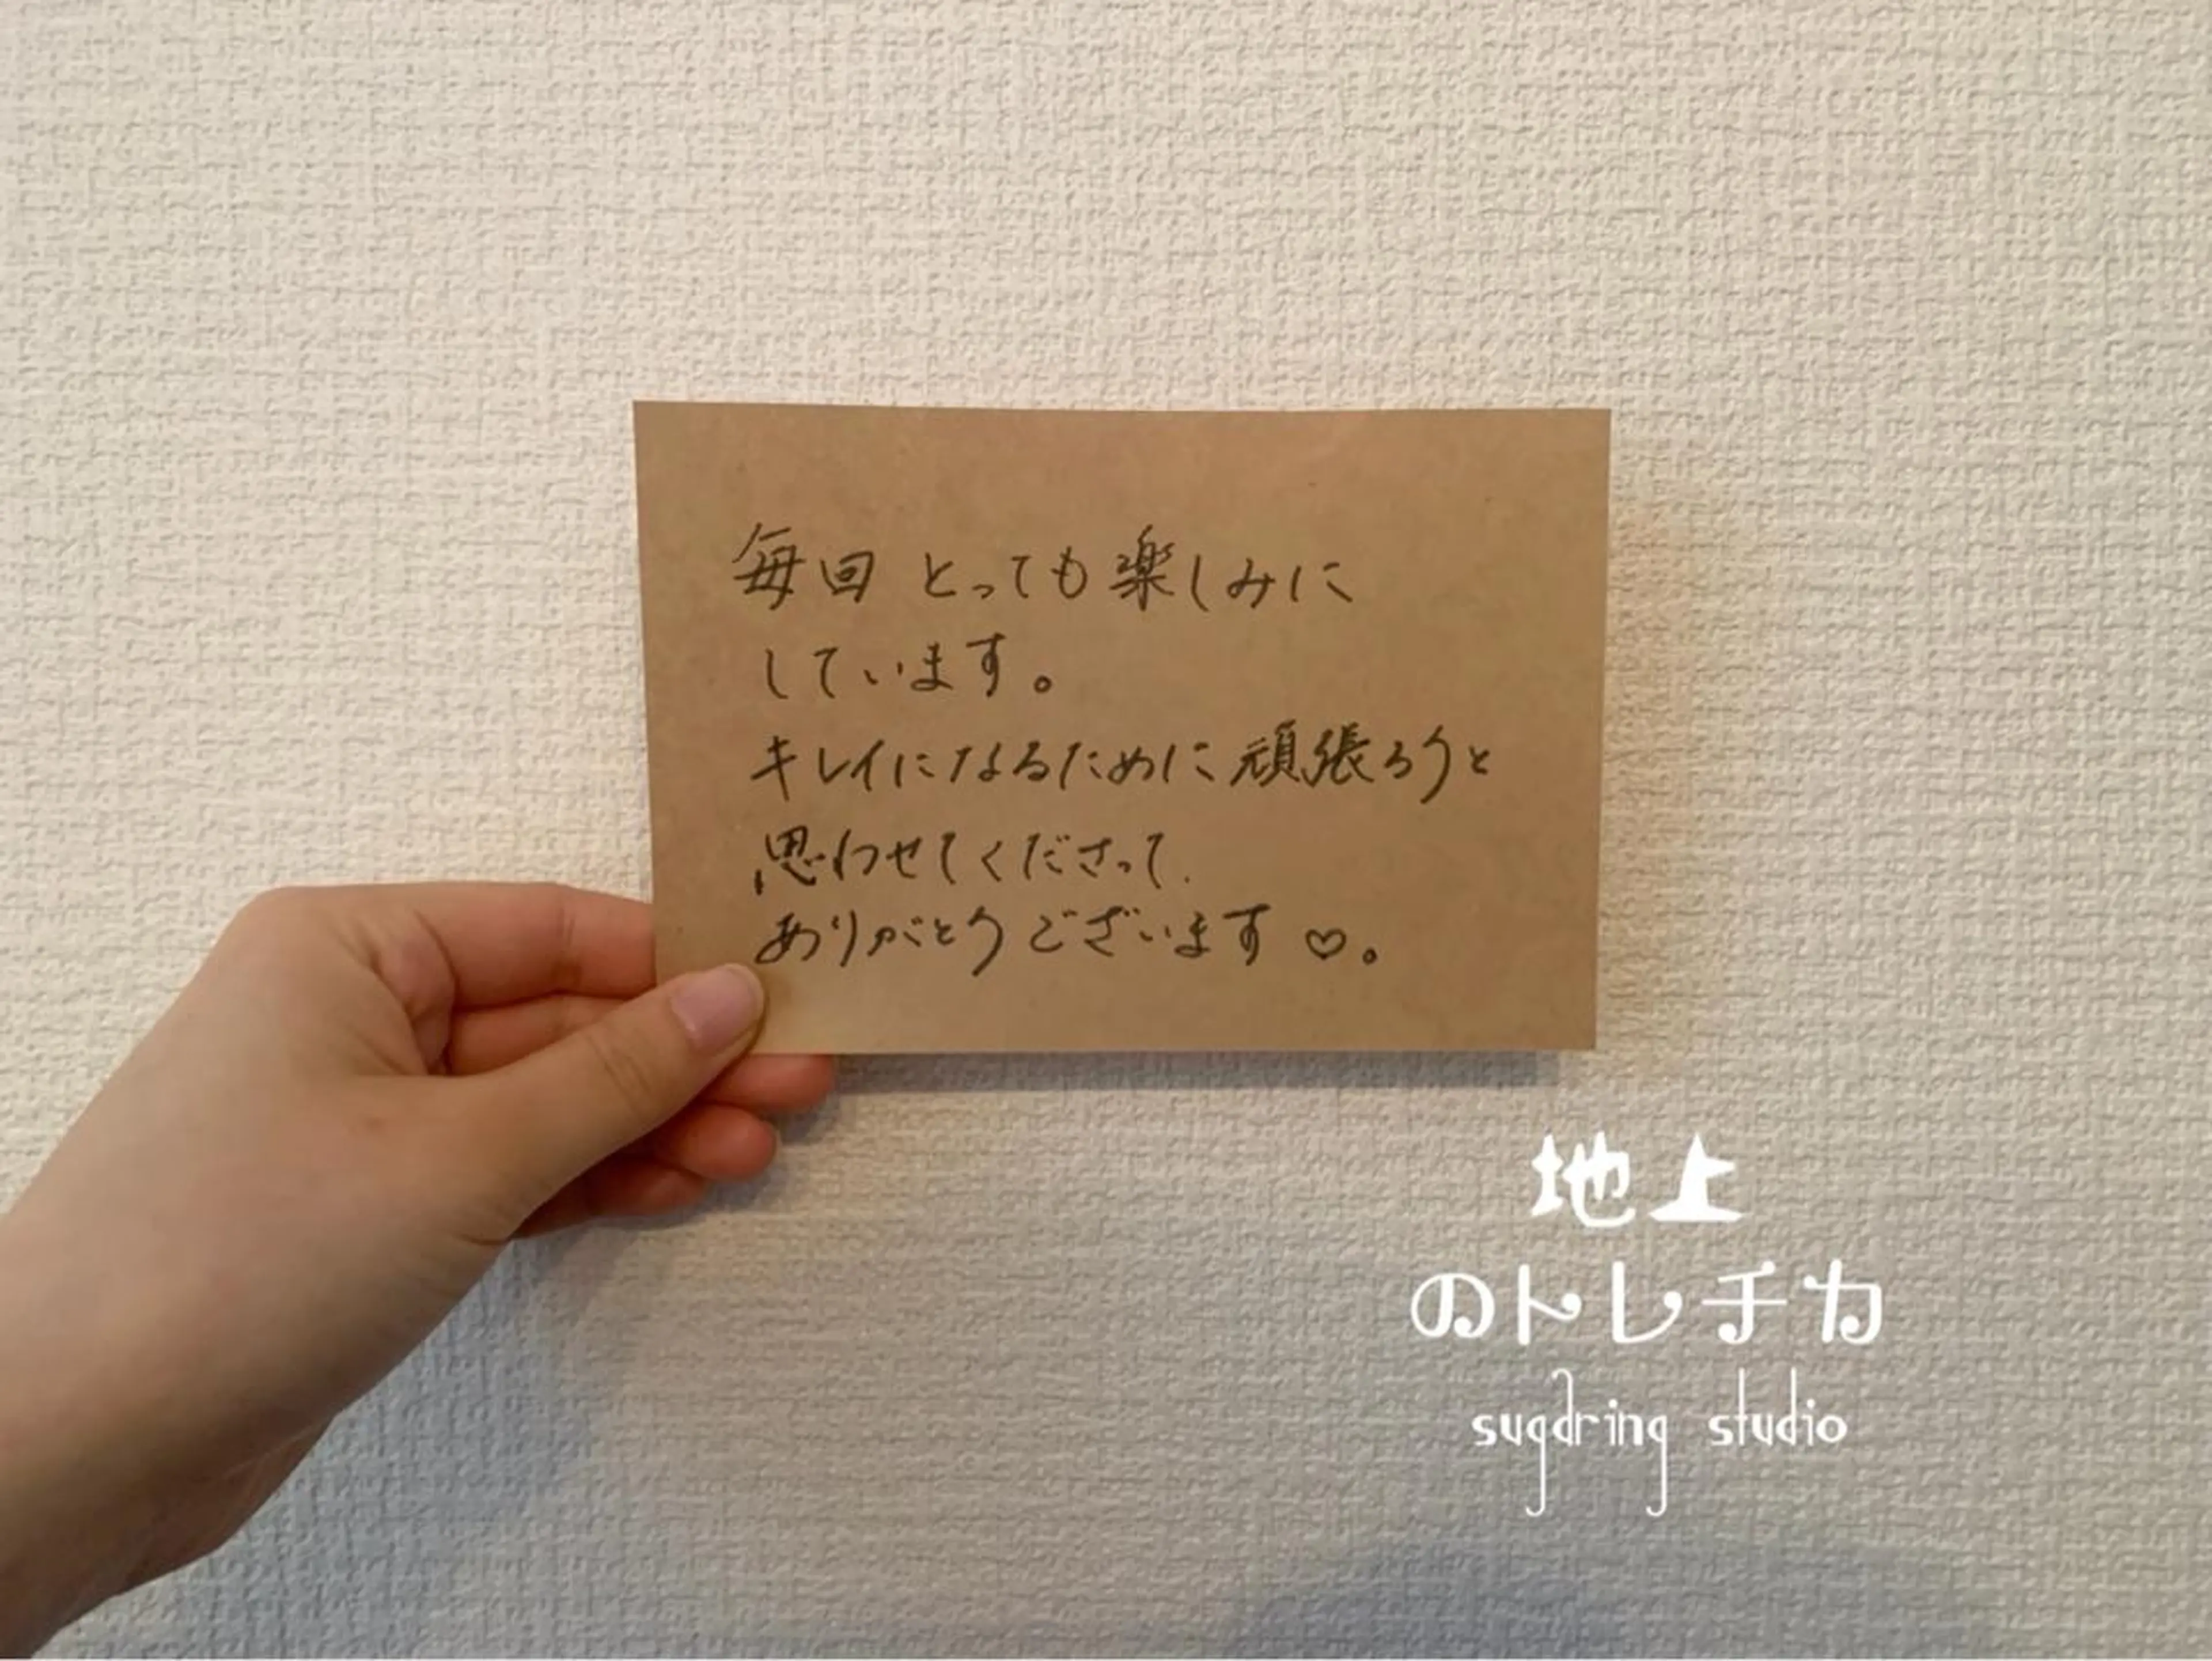 毎回 とっても楽しみに
しています。
キレイになるために頑張ろうと
思わせてくださって、
ありがとうございます♡。
地上
のトレチカ
sugaring studio